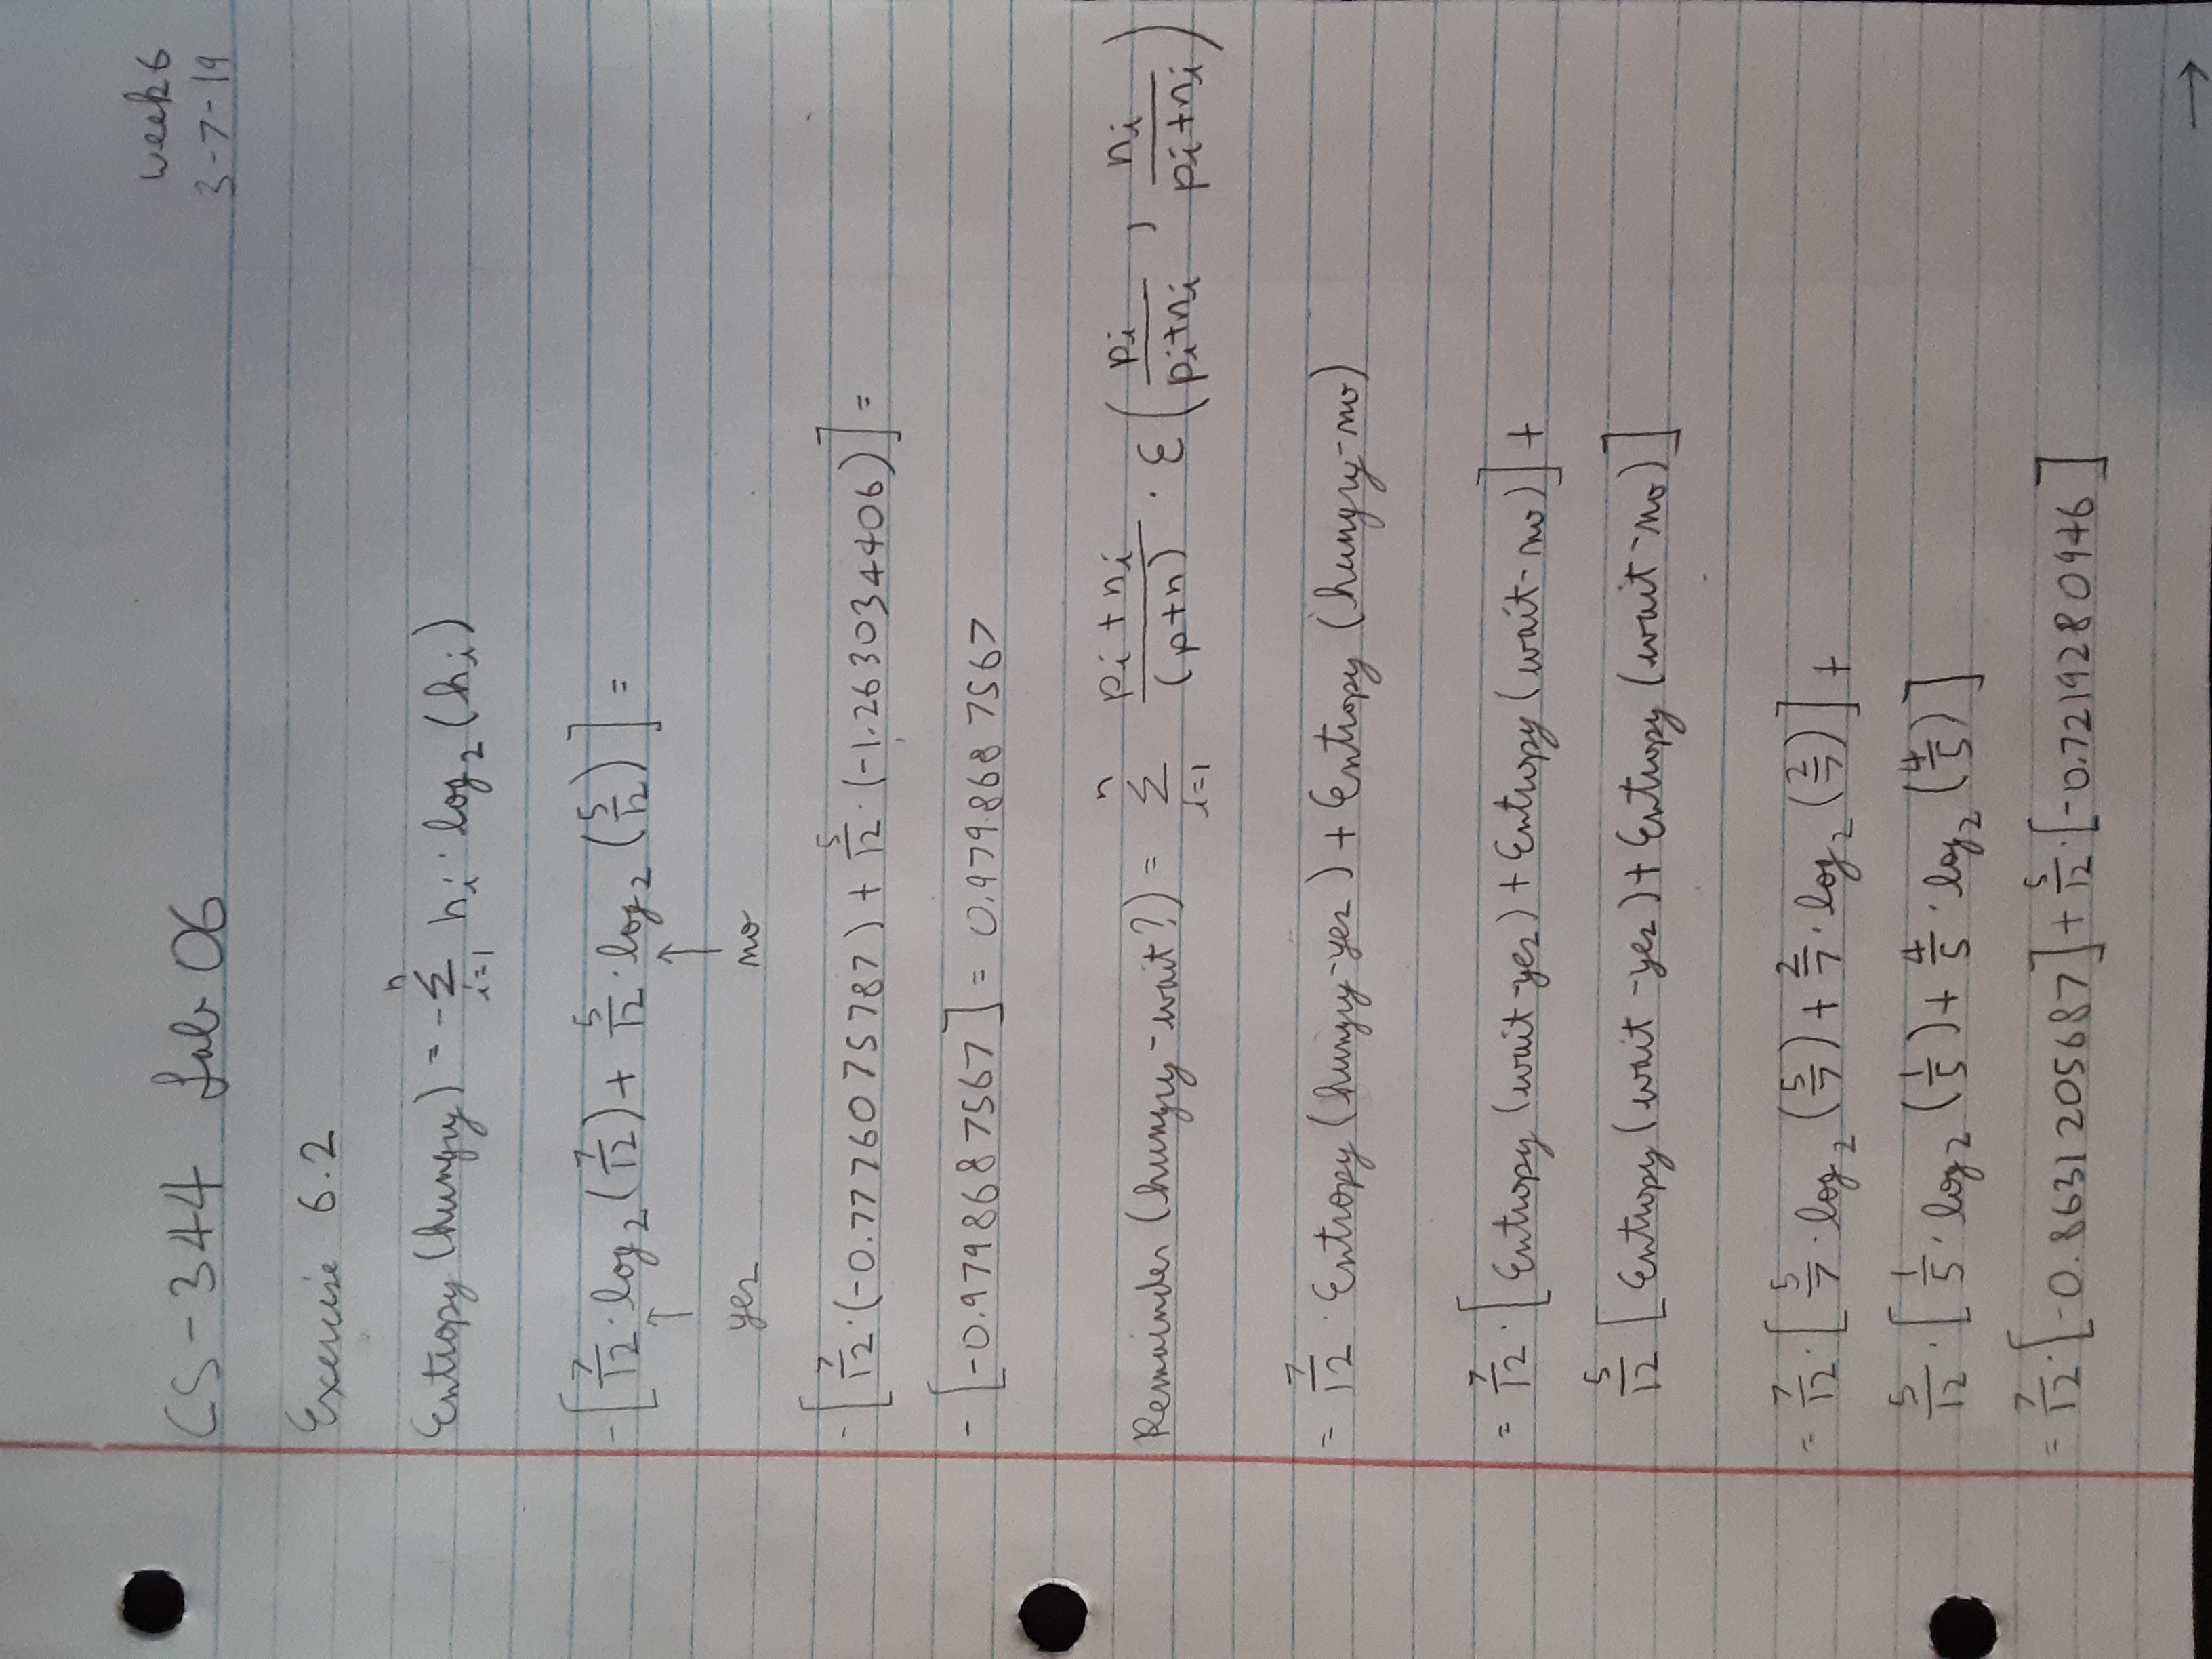 week 6
CS-344 Lab 06
3-7-19
Exercise 6.2
Entropy (hungry) = -∑ⁿᵢ₌₁ hᵢ · log₂ (hᵢ)
-[7/12 · log₂ (7/12) + 5/12 · log₂ (5/12)] =
↑ ↑
yes no
-[7/12 · (-0.7776075787) + 5/12 · (-1.263034406)] =
-[-0.9798687567] = 0.9798687567
Remainder (hungry-wait?) = ∑ⁿᵢ₌₁ pᵢ+nᵢ/(p+n) · ε(pᵢ/pᵢ+nᵢ , nᵢ/pᵢ+nᵢ)
= 7/12 · Entropy (hungry-yes) + Entropy (hungry-no)
= 7/12 · [Entropy (wait-yes) + Entropy (wait-no)] +
5/12 [Entropy (wait-yes) + Entropy (wait-no)]
= 7/12 · [5/7 · log₂ (5/7) + 2/7 · log₂ (2/7)] +
5/12 · [1/5 · log₂ (1/5) + 4/5 · log₂ (4/5)]
= 7/12 · [-0.8631205687] + 5/12 · [-0.7219280946]
→